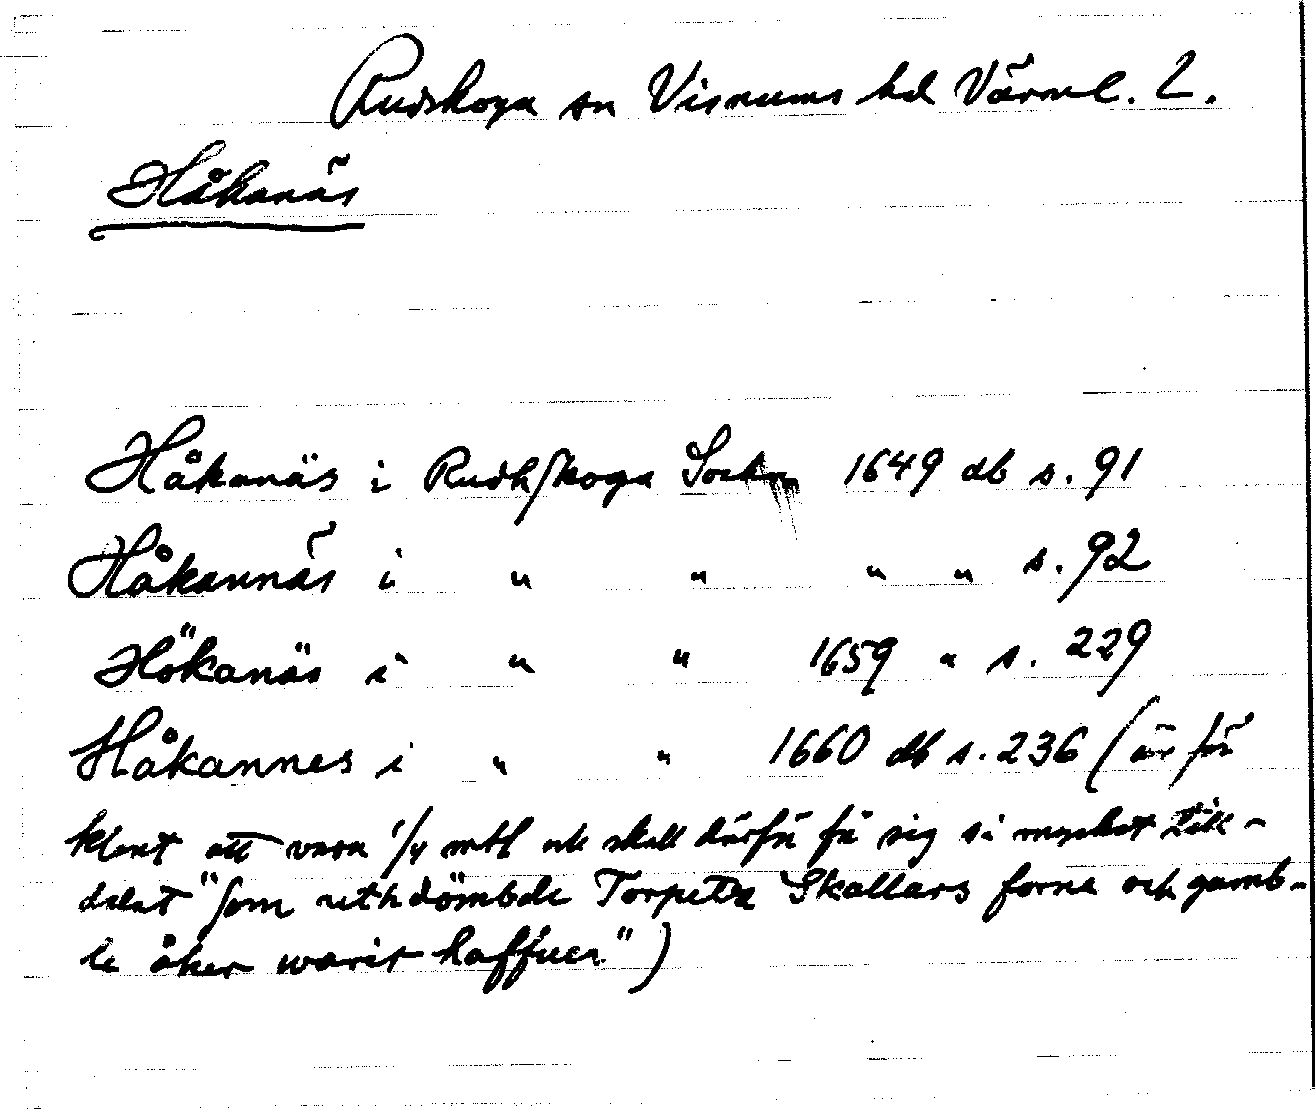 Rudskoga sn Visnums hd Värml. L.
Håkanäs
Håkanäs i Rudhskoga Sockn 1649 db s. 91
Håkannäs i " " " " s. 92
Hökanäs i " " 1659 " s. 229
Håkannes i " " 1660 db s. 236 (är för
klart att vara 1/4 mtl och skall därför få sig så mycket till-
delat "som uthdömbde Torpetz Skallars forna och gamb-
le åker warit haffuer")